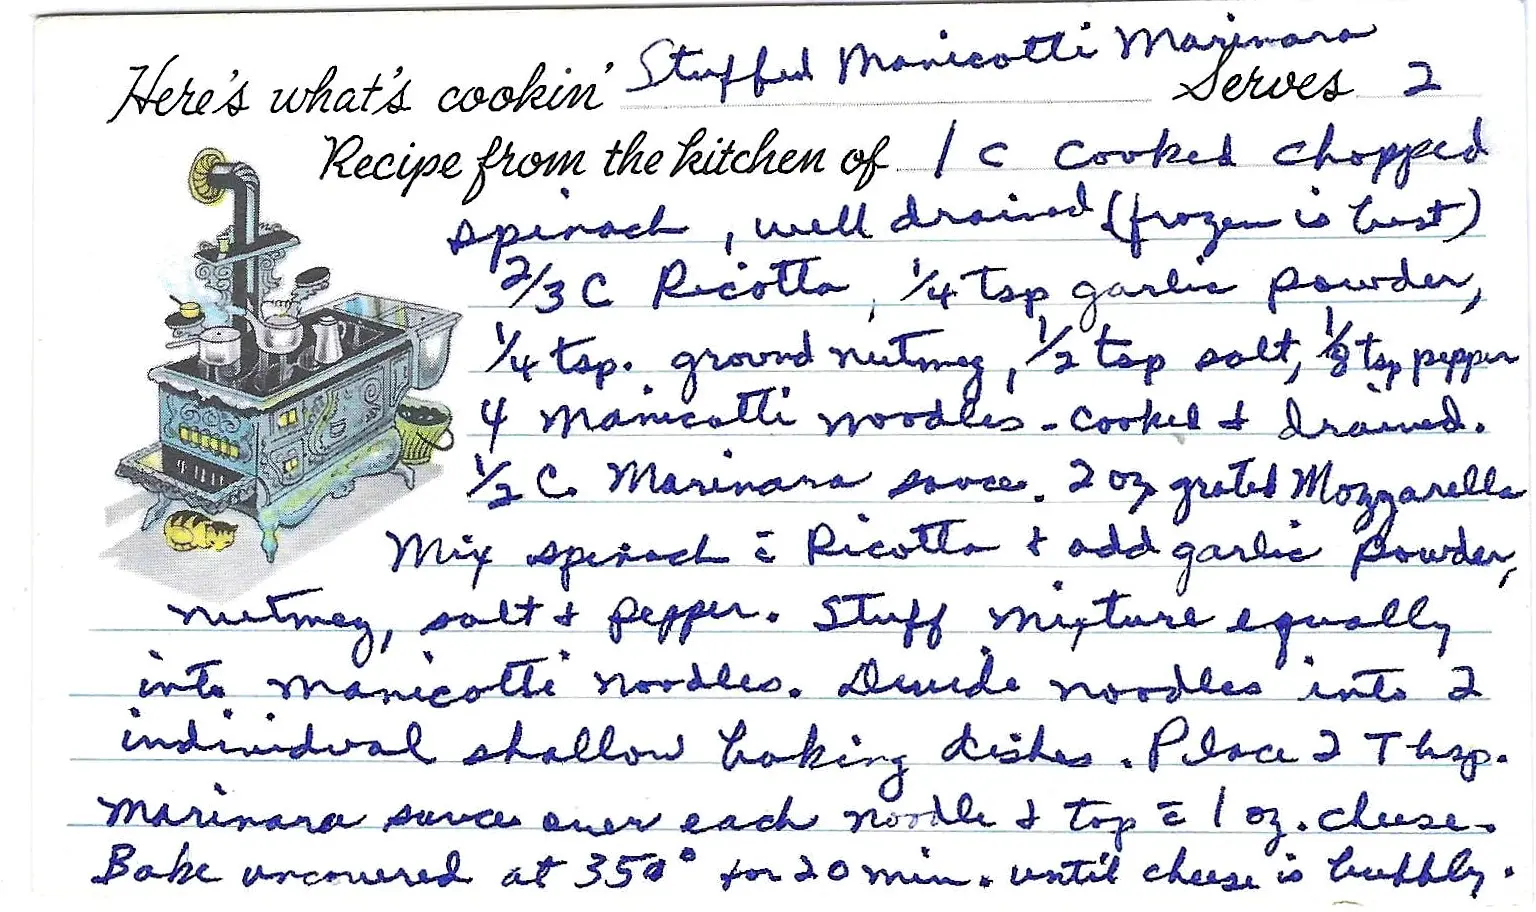 Here's what's cookin' Stuffed Manicotti Marinara Serves 2
Recipe from the kitchen of 1 c cooked chopped
spinach, well drained (frozen is best)
2/3 C Ricotta, 1/4 tsp garlic powder,
1/4 tsp. ground nutmeg, 1/2 tsp salt, 1/8 tsp pepper
4 Manicotti noodles - cooked & drained.
1/2 C. Marinara sauce. 2 oz grated Mozzarella
Mix spinach c̄ Ricotta & add garlic powder,
nutmeg, salt & pepper. Stuff mixture equally
into manicotti noodles. Divide noodles into 2
individual shallow baking dishes. Place 2 Tbsp.
Marinara sauce over each noodle & top c̄ 1 oz. cheese.
Bake uncovered at 350° for 20 min. until cheese is bubbly.